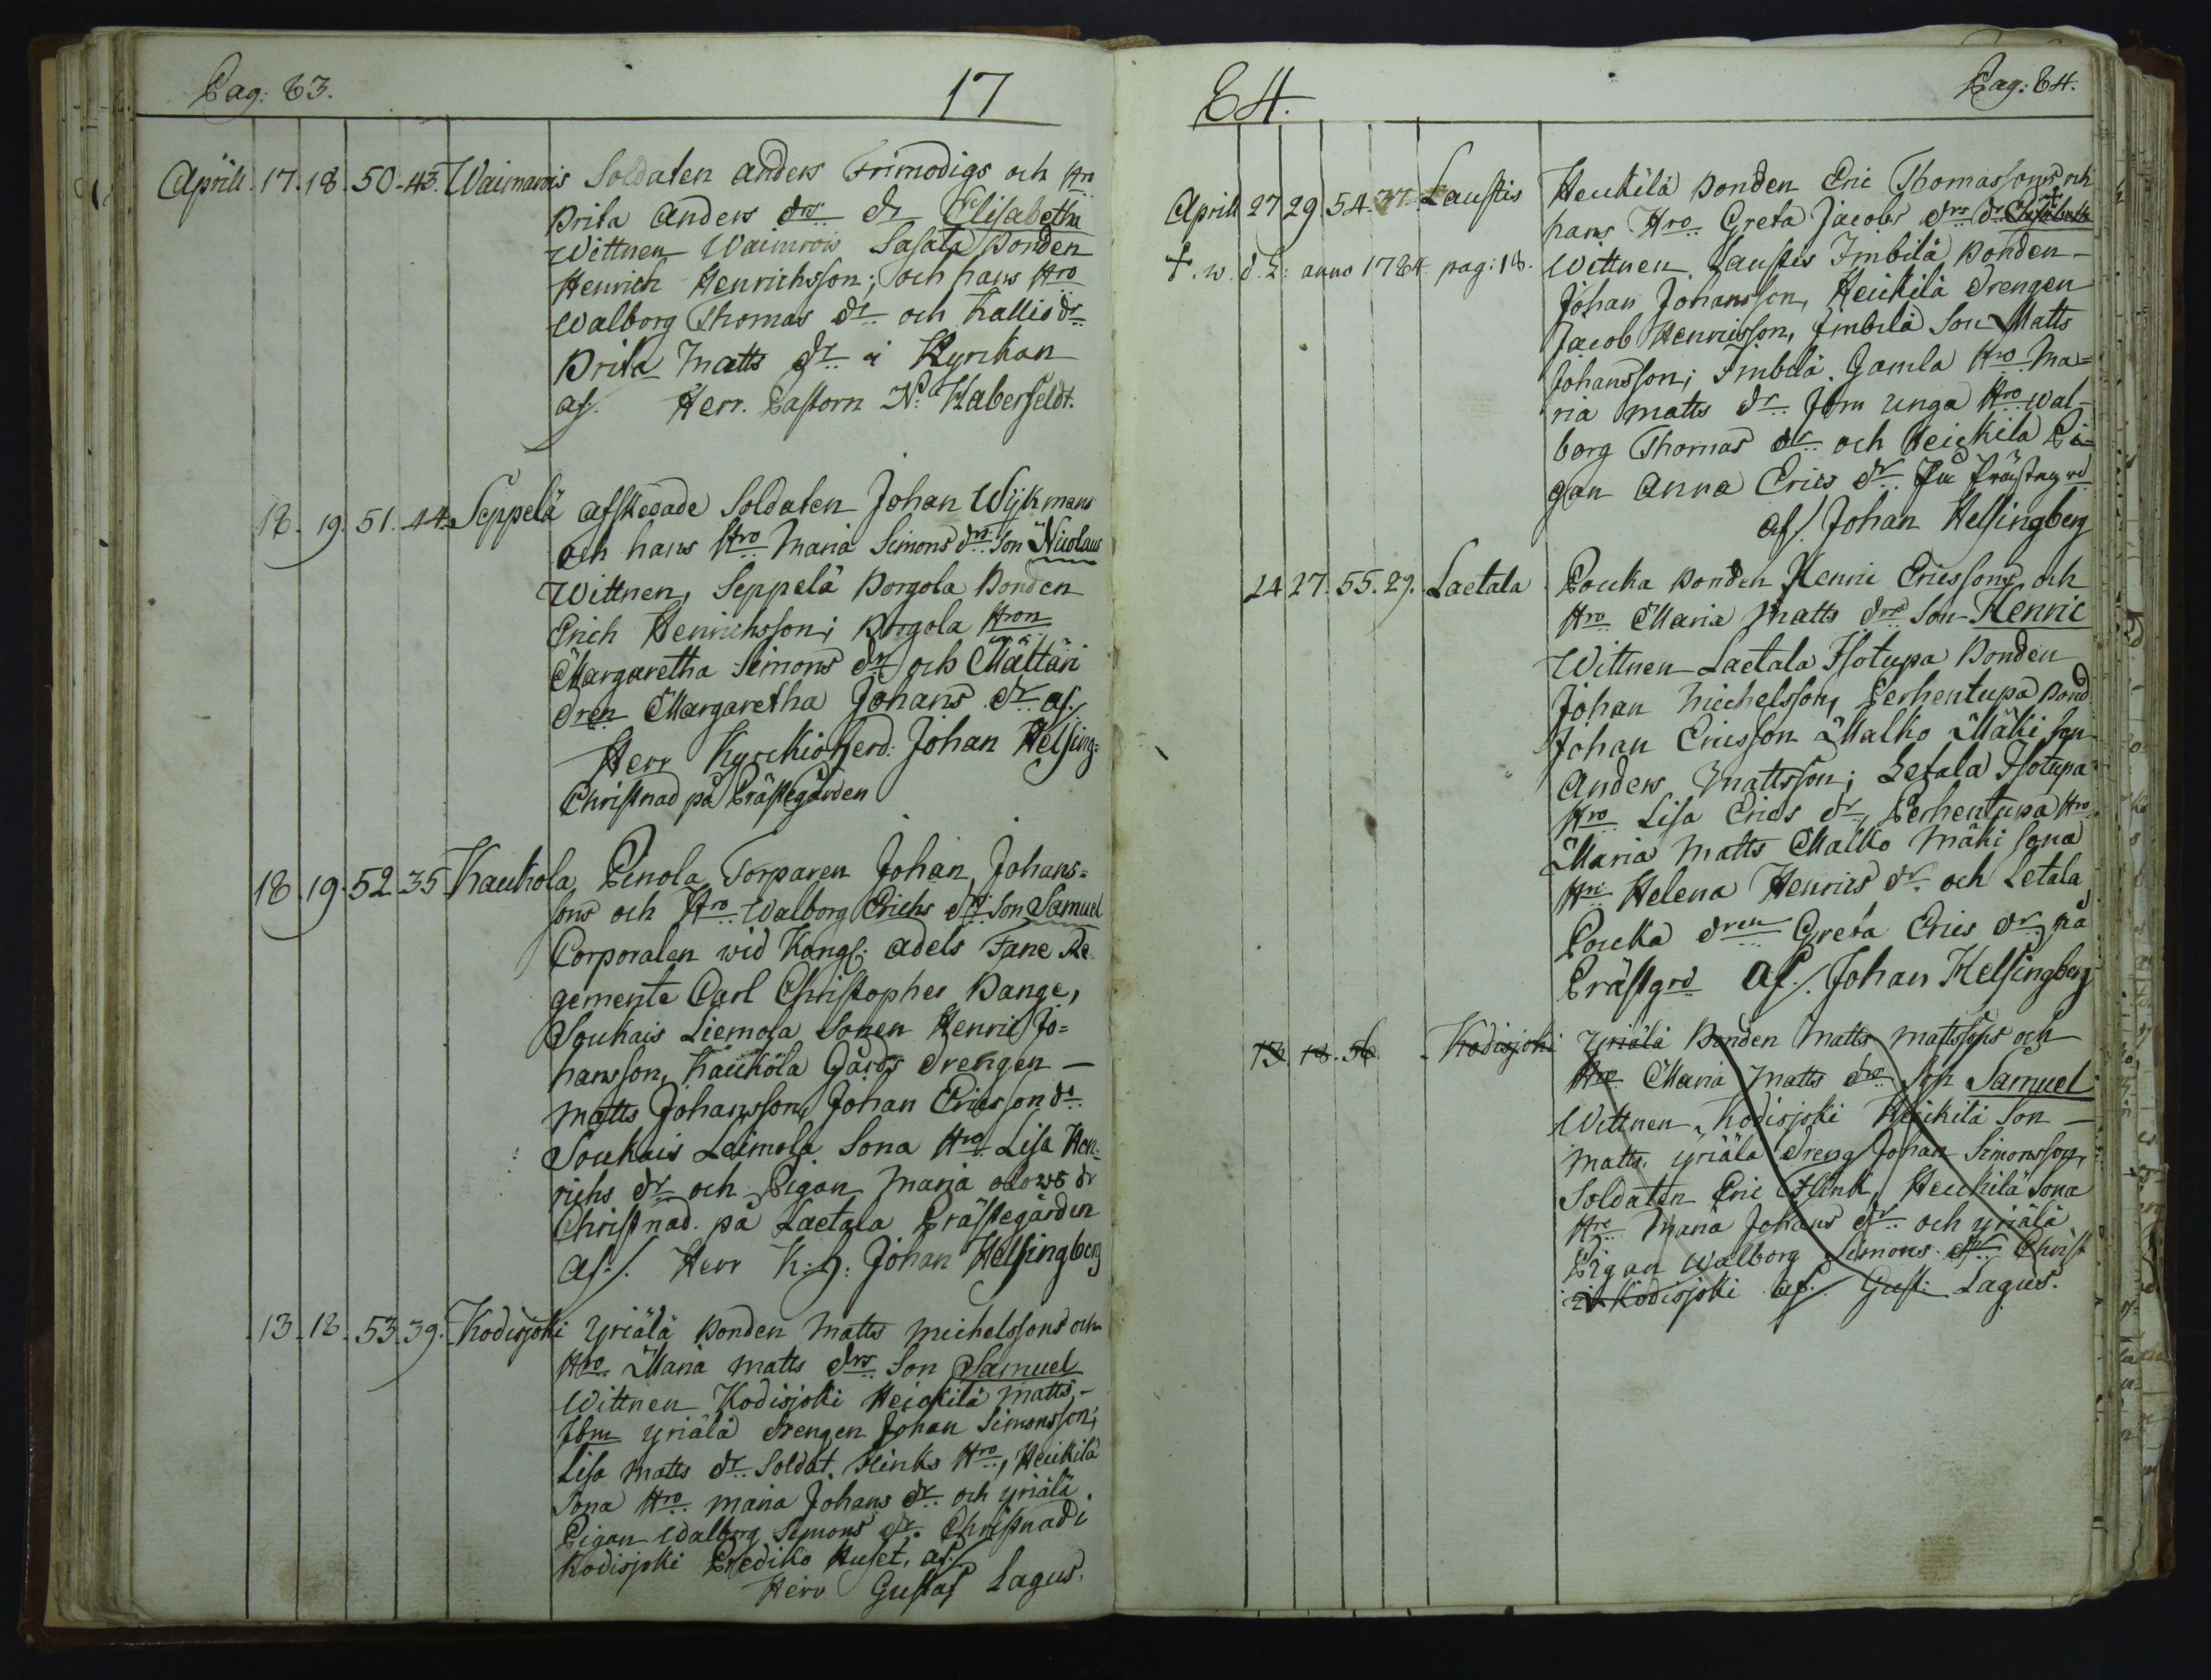 Pag: 83.
17
Aprill. 17. 18. 50. 43. Waimarois Soldaten Anders Frimodigs och Hro
Brita Anders drs dr Elisabetha
Wittnen Waimrois Sasala Bonden
Henrich Henrichsson; och hans Hro
Walborg Thomas dr och Kallio dr
Brita Matts dr i Kyrckan
af. Herr. Pastorn Nd Haberfeldt.
18. 19. 51. 44. Seppelä afskedade Soldaten Johan Wijkmans
och hans Hro Maria Simons drs Son Nicolaus
Wittnen, Seppelä Borgola Bonden
Erich Henrichsson; Borgola Hron
Margaretha Simons dr och Mättäri
dren Margaretha Johans dr af./
Herr Kyrckioherd: Johan Helsing:
Christnad på Prästegården
18. 19. 52. 35 Kaukola Penola Torparen Johan, Johans=
sons och Hro Walborg Erichs drs Son Samuel
Corporalen wid Kongl: Adels Fane Re=
gemente Carl Christopher Bange,
Soukais Liemola Sonen Henric Jo=
hansson, Kauköla Gårds drengen —
Matts Johansson, Johan Ericsson dr
Soukais Leimola Sona Hro Lisa Hen=
richs dr och Pigan Maria Olows dr
Christnad på Laetala Prästegården
af./. Herr K: H: Johan Helsingberg
13. 18. 53. 39. Kodisjoki Yriälä Bonden Matts Michelssons och
Hro Maria Matts drs Son Samuel
Wittnen Kodisjoki Heickilä Matts, —
Ibm Yriälä drengen Johan Simonsson;
Lisa Matts dr Soldat. Flinks Hro, Heickilä
Sona Hro Maria Johans dr och Yriälä
Pigan Walborg Simons dr Christnad i
Kodisjoki Prediko Huset, af./
Herr Gustaf Lagus.
84.
Pag: 84.
Aprill 27 29 54. 37. Laustis Heickilä Bonden Eric Thomassons och
hans Hro Greta Jacobs drs dr Elisabeth
†. w. d. 2: anno 1784 pag: 18. Wittnen, Laustis Imbilä Bonden —
Johan Johansson, Heickilä drengen
Jacob Henricsson, Imbilä Son Matts
Johansson; Imbilä Gamla Hro Ma=
ria Matts dr. Ibm unga Hro Wal=
borg Thomas dr och Heickilä Pi=
gan Anna Erics dr På Prästegrd
af./. Johan Helsingberg
24 27. 55. 29. Laetala Pouka Bonden Henric Ericssons och
Hro Maria Matts drs Son Henric
Wittnen Laetala Isotupa Bonden
Johan Michelsson, Perhentupa Bond
Johan Ericsson Malko Mäki Son
Anders Mattsson; Letala Isotupa
Hro Lisa Erics dr, Perhentupa Hro
Maria Matts Malko Mäki Sona
Hro Helena Henrics dr och Letala
Pouka dren Greta Erics dr på
Prästgrd af./. Johan Helsingberg
13. 18. 56. Kodisjoki Yriälä Bonden Matts Mattssons och
Hro Maria Matts drs Son Samuel
Wittnen Kodisjoki Heickilä Son —
Matts. Yriälä Dreng Johan Simonsson,
Soldaten Eric Flink, Heickilä Sona
Hro Maria Johans dr och Yriälä
Pigan Walborg Simons dr Christ
i Kodisjoki af./. Gust: Lagus.